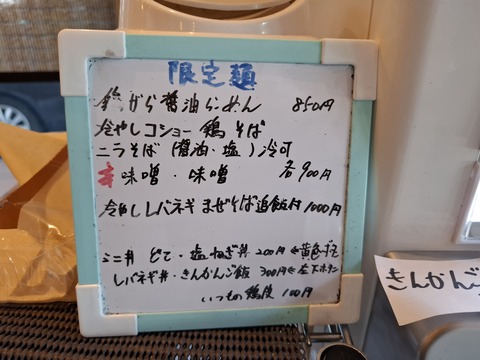 限定麺
鶏がら醤油らーめん 850円
冷やしコショー鶏そば
ニラそば(醤油・塩)冷可
辛味噌・味噌 各900円
冷やしレバネギまぜそば追飯付 1000円
ミニ丼 どて・塩ねぎ丼 200円 ⇐黄色ボタン
レバネギ丼・きんかんご飯 300円⇐左下ボタン
いつもの鶏皮 100円
きんかんご